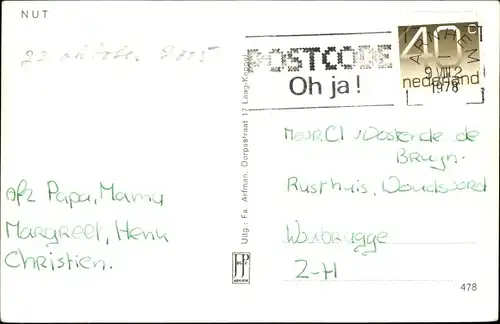 NUT
22 oktober 2005
POSTCODE
Oh ja!
ARNHEM
9 VIII 2
1978
40 c
nederland
Mevr. Cl v Oostende de
Bruyn.
Rusthuis, Woudsoord
Woubrugge
Z-H
afz Papa, Mamy
Margreet, Henk
Christien.
Uitg.: Fa. Arfman, Dorpsstraat 17 Laag-Keppel
478